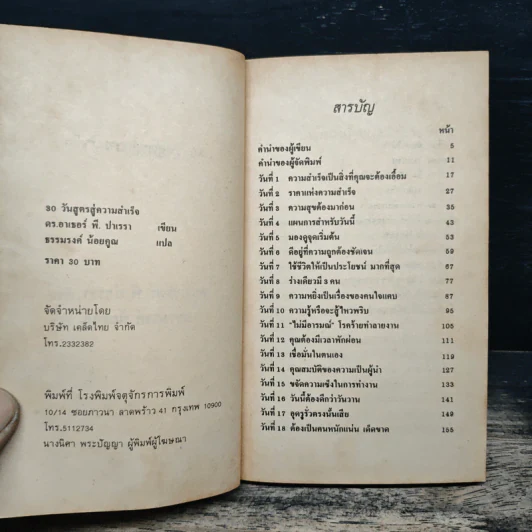 30 วันสูตรสู่ความสำเร็จ
ดร.อาเธอร์ พี. ปาเรรา เขียน
ธรรมรงค์ น้อยคูณ แปล
ราคา 30 บาท
จัดจำหน่ายโดย
บริษัท เคล็ดไทย จำกัด
โทร.2332382
พิมพ์ที่ โรงพิมพ์จตุจักรการพิมพ์
10/14 ซอยภาวนา ลาดพร้าว 41 กรุงเทพ 10900
โทร.5112734
นางนิศา พระปัญญา ผู้พิมพ์ผู้โฆษณา
สารบัญ
หน้า
คำนำของผู้เขียน 5
คำนำของผู้จัดพิมพ์ 11
วันที่ 1 ความสำเร็จเป็นสิ่งที่คุณจะต้องเอื้อม 17
วันที่ 2 ราคาแห่งความสำเร็จ 27
วันที่ 3 ความสุขต้องมาก่อน 35
วันที่ 4 แผนการสำหรับวันนี้ 43
วันที่ 5 มองดูจุดเริ่มต้น 53
วันที่ 6 ดีอยู่ที่ความถูกต้องชัดเจน 59
วันที่ 7 ใช้ชีวิตให้เป็นประโยชน์ มากที่สุด 67
วันที่ 8 ร่างเดียวมี 3 คน 77
วันที่ 9 ความหยิ่งเป็นเรื่องของคนใจแคบ 87
วันที่ 10 ความรู้หรือจะสู้ไหวพริบ 95
วันที่ 11 "ไม่มีอารมณ์" โรคร้ายทำลายงาน 105
วันที่ 12 คุณต้องมีเวลาพักผ่อน 111
วันที่ 13 เชื่อมั่นในตนเอง 119
วันที่ 14 คุณสมบัติของความเป็นผู้นำ 127
วันที่ 15 ขจัดความเซ็งในการทำงาน 133
วันที่ 16 วันนี้ต้องดีกว่าวันวาน 141
วันที่ 17 อุดรูรั่วตรงนั้นเสีย 149
วันที่ 18 ต้องเป็นคนหนักแน่น เด็ดขาด 155